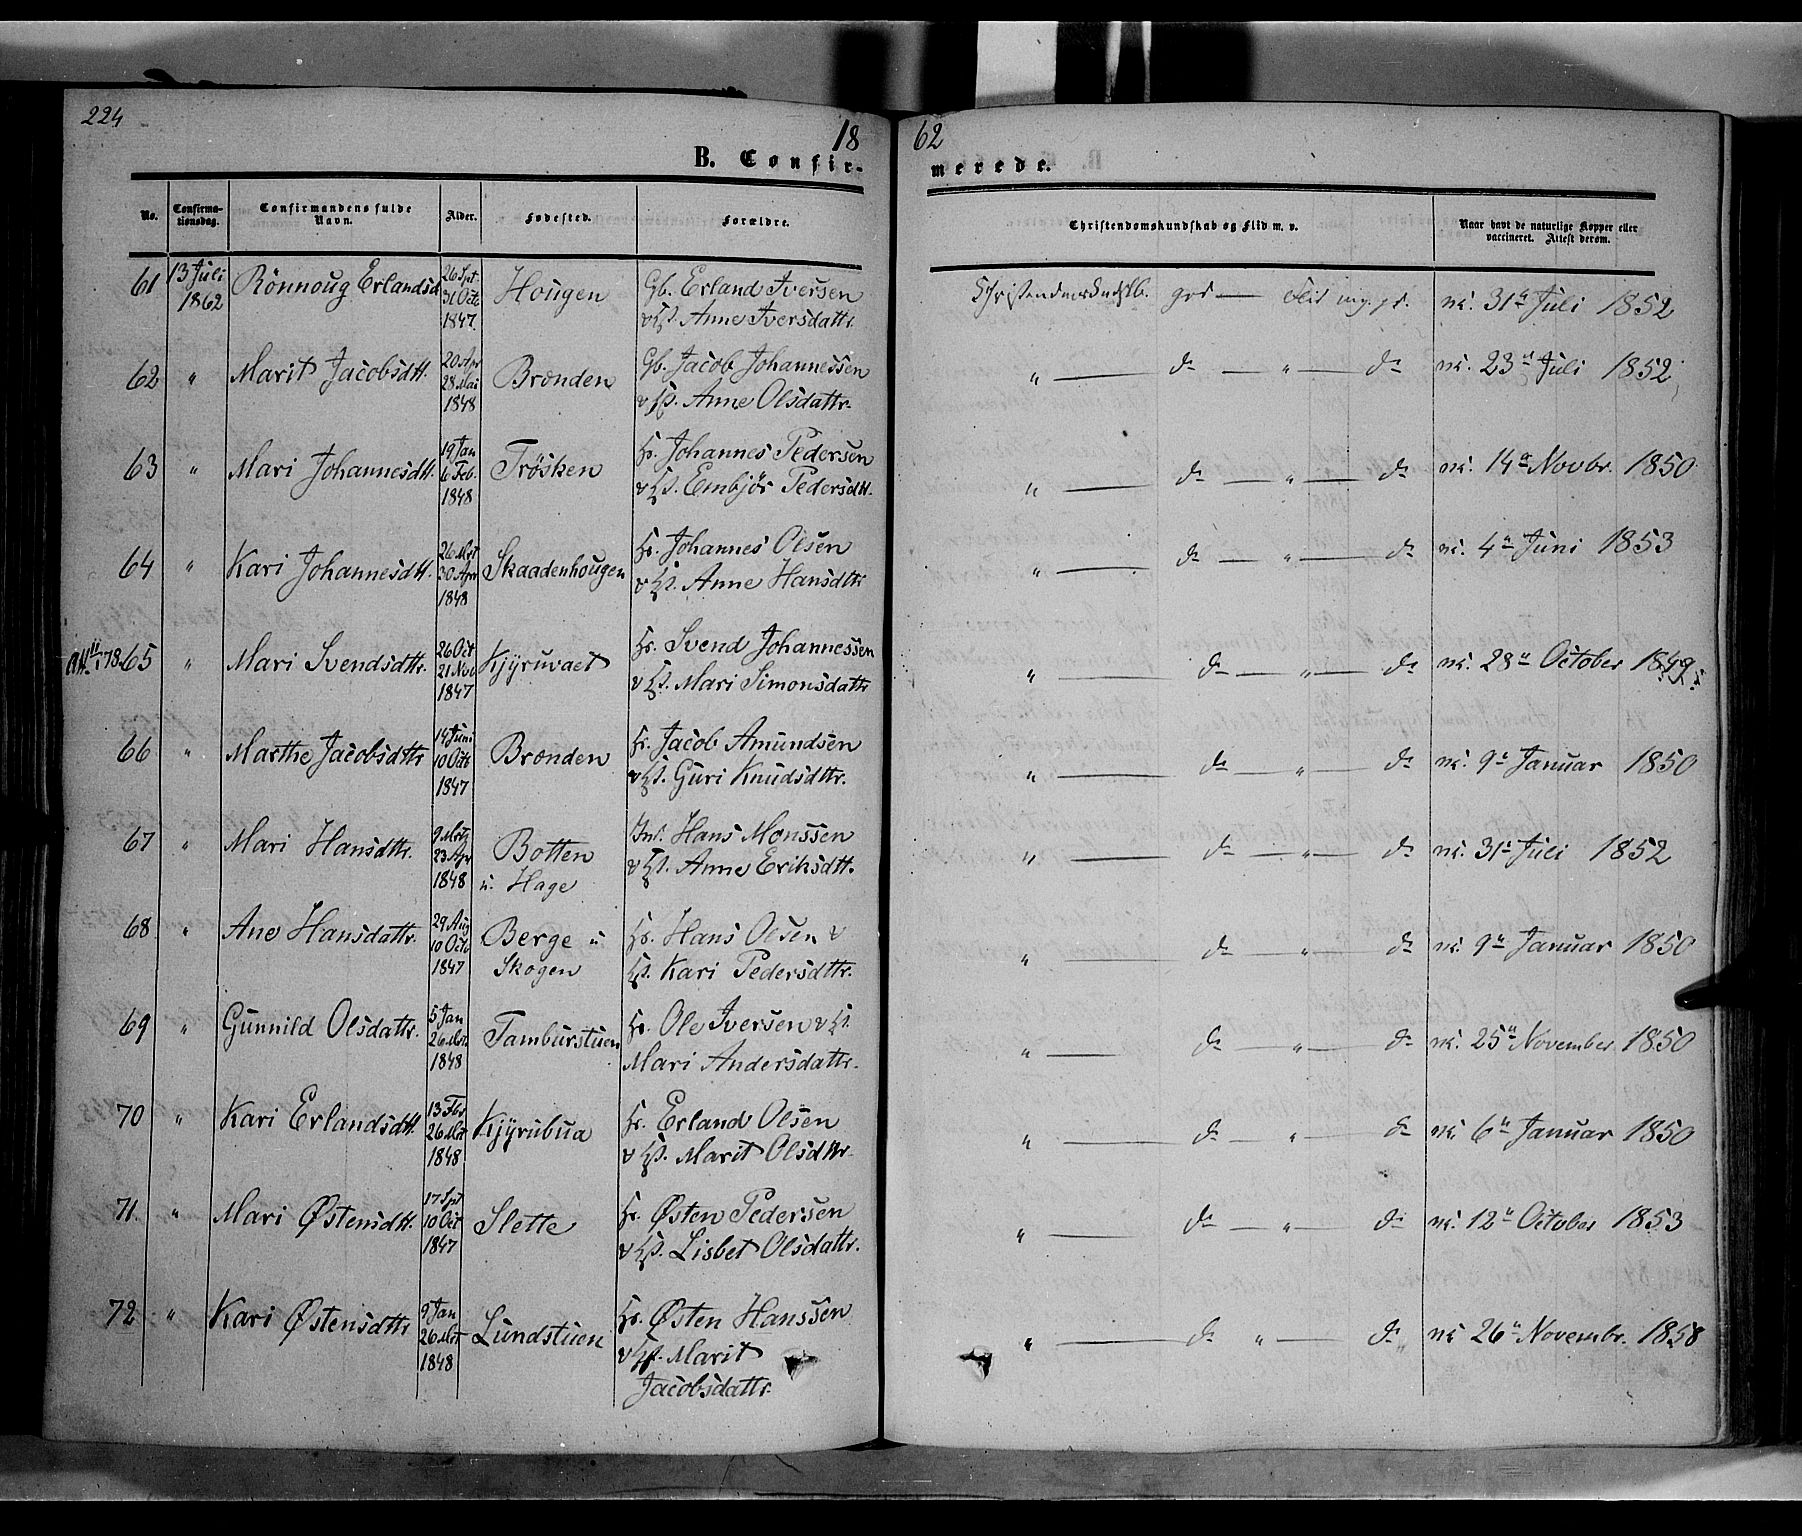 224
18 62
B. Confir- merede.
No.
Confirma-
tionsdag.
Confirmandens fulde
Navn.
Alder.
Fødested.
Forældre.
Christendomskundskab og Flid m. v.
Naar havt de naturlige Kopper eller
vaccineret. Attest derom.
61 13 Juli 1862 Rönnoug Erlandsd. 26 Spt. 31 Oct. 1847 Hougen Gb. Erland Iversen
v Hst. Anne Iversdattr. god — Flid mg. gd. nk. 31" Juli 1852
62 " Marit Jacobsdtt. 20 Apr 28 Mai 1848 Brænden Gb. Jacob Johannessen
v Hst. Anne Olsdattr. " — do — " — do nk. 23" Juli 1852
63 " Mari Johannesdtt. 19 Jan 6 Feb. 1848 Trösken Hs. Johannes Pedersen
v Hst. Embjör Pedersdtt. " — do — " — do nk. 14" Novbr. 1850
64 " Kari Johannesdtt. 26 Mrt 30 Apr 1848 Skaadenhougen Hs. Johannes Olsen
v Hst. Anne Hansdttr " — do — " — do nk. 4" Juni 1853
65 " Mari Svendsdttr. 26 Oct 21 Nov 1847 Kjyruvaet Hs. Svend Johannessen
v Hst. Mari Simonsdattr " — do — " — do nk. 28" October 1849
66 " Marthe Jacobsdttr 14 Juni 10 Octb 1847 Brænden Hs. Jacob Amundsen
v Hst. Guri Knudsdttr. " — do — " — do nk. 9" Januar 1850
67 " Mari Hansdttr. 9 Mrts 23 Apr 1848 Botten
u. Hage Ind. Hans Monssen
v Hst. Anne Eriksdtt. " — do — " — do nk. 31" Juli 1852
68 " Ane Hansdattr. 29 Aug 10 Octb 1847 Berge u
Skogen Hs. Hans Olsen v
Hst. Kari Pedersdttr. " — do — " — do nk. 9" Januar 1850
69 " Gunnild Olsdattr. 5 Jan 26 Mrt. 1848 Tamburstuen Hs. Ole Iversen v Hst.
Mari Andersdattr. " — do — " — do nk. 25" November 1850
70 " Kari Erlandsdtt. 13 Fbr 26 Mrt 1848 Kjyrubua Hs. Erland Olsen
v Hst. Marit Olsdttr. " — do — " — do nk. 6" Januar 1850
71. " Mari Østensdtt. 17 Spt 10 Oct 1847 Slette Hs. Østen Pedersen
v Hst. Lisbet Olsdattr. " — do — " — do nk. 12" October 1853
72 " Kari Østensdttr 9 Jan 26 Mrt 1848 Lundstuen Hs. Østen Hanssen
v Hst. Marit
Jacobsdattr. " — do " — do nk 26" Novembr. 1858